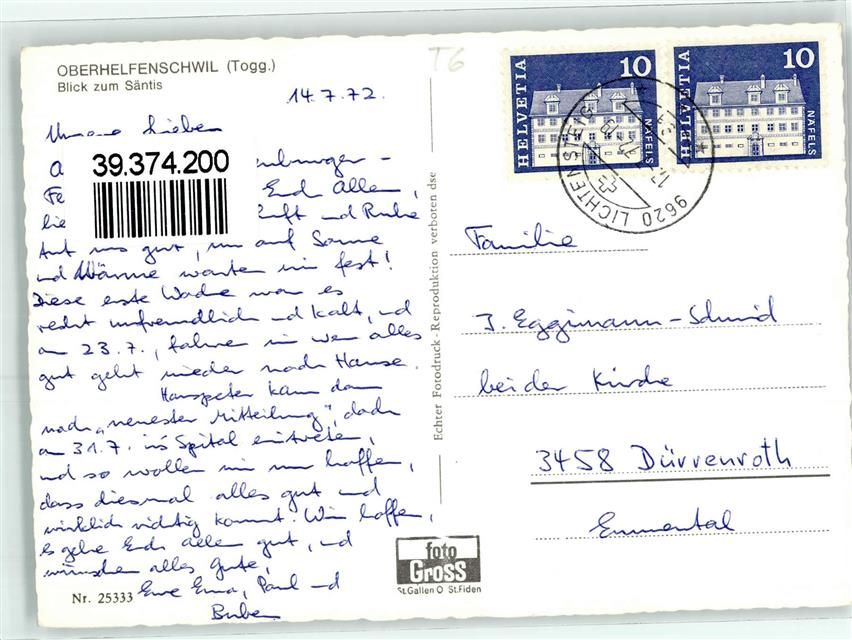 OBERHELFENSCHWIL (Togg.)
Blick zum Säntis
T6
14.7.72.
HELVETIA 10 NÄFELS
HELVETIA 10 NÄFELS
9620 LICHTENSTEIG
Lieben
39.374.200
Euch Allen,
Luft und Ruhe
tut uns gut, nur auf Sonne
und Wärme warten wir fest!
Diese erste Woche war es
recht unfreundlich und kalt, und
am 23.7., fahren wir wenn alles
gut geht wieder nach Hause.
Hanspeter kann dann
nach „neuester Mitteilung", doch
am 31.7. in's Spital eintreten,
und so wollen wir nur hoffen,
dass diesmal alles gut und
wirklich richtig kommt. Wir hoffen,
es gehe Euch allen gut, und
wünschen alles Gute,
Eure Erna, Paul und
Buben
Nr. 25333
Echter Fotodruck - Reproduktion verboten dse
foto
Gross
St.Gallen O St.Fiden
Familie
J. Eggimann-Schmid
bei der Kirche
3458 Dürrenroth
Emmental